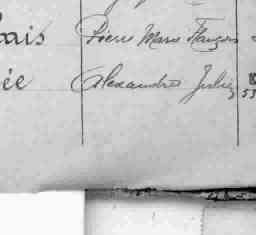 ais Pierre Marie François
ée Alexandre Julie
53